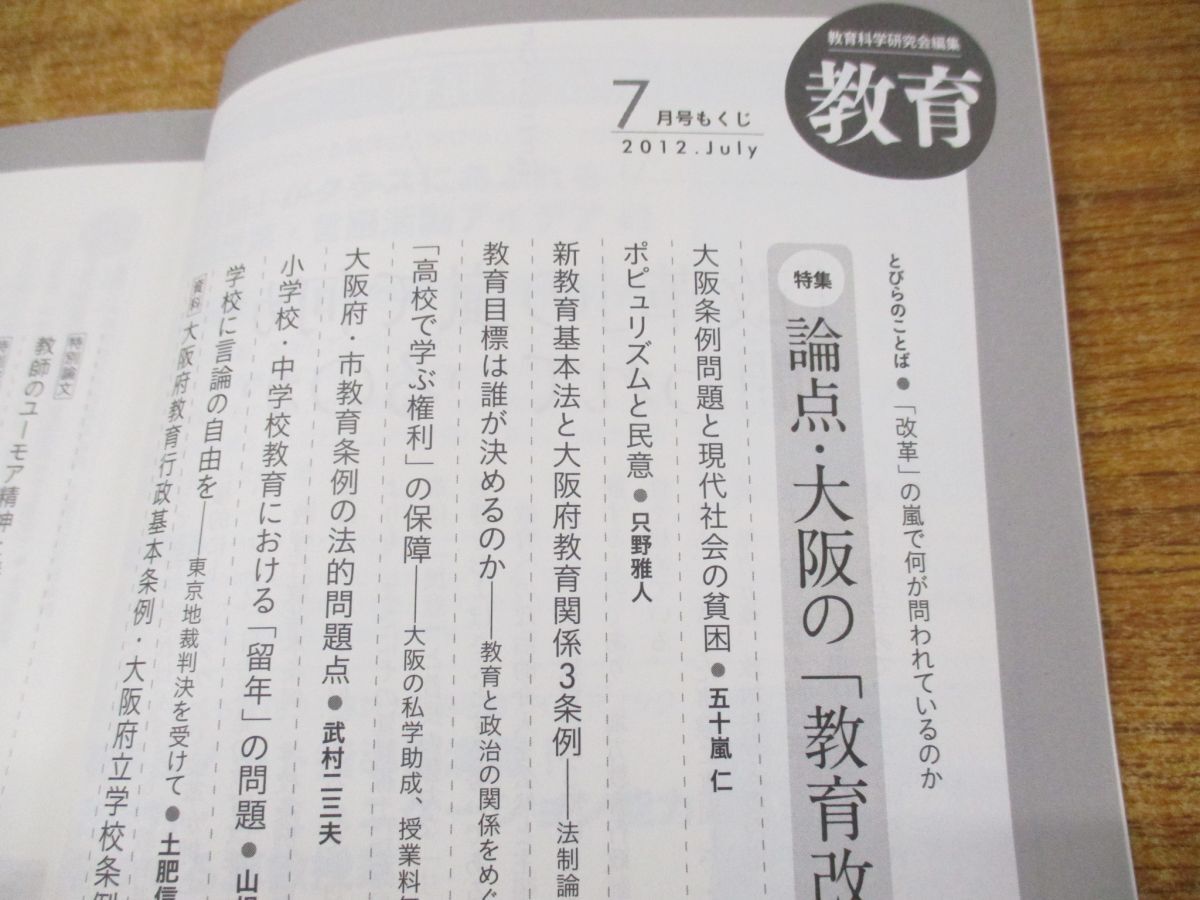 教育科学研究会編集
教育
7月号もくじ
2012.July
とびらのことば●「改革」の嵐で何が問われているのか
特集 論点・大阪の「教育改
大阪条例問題と現代社会の貧困●五十嵐 仁
ポピュリズムと民意●只野雅人
新教育基本法と大阪府教育関係3条例――法制論
教育目標は誰が決めるのか――教育と政治の関係をめぐ
「高校で学ぶ権利」の保障――大阪の私学助成、授業料
大阪府・市教育条例の法的問題点●武村二三夫
小学校・中学校教育における「留年」の問題●山
学校に言論の自由を――東京地裁判決を受けて●土肥信
資料 大阪府教育行政基本条例・大阪府立学校条例
特別論文
教師のユーモア精神